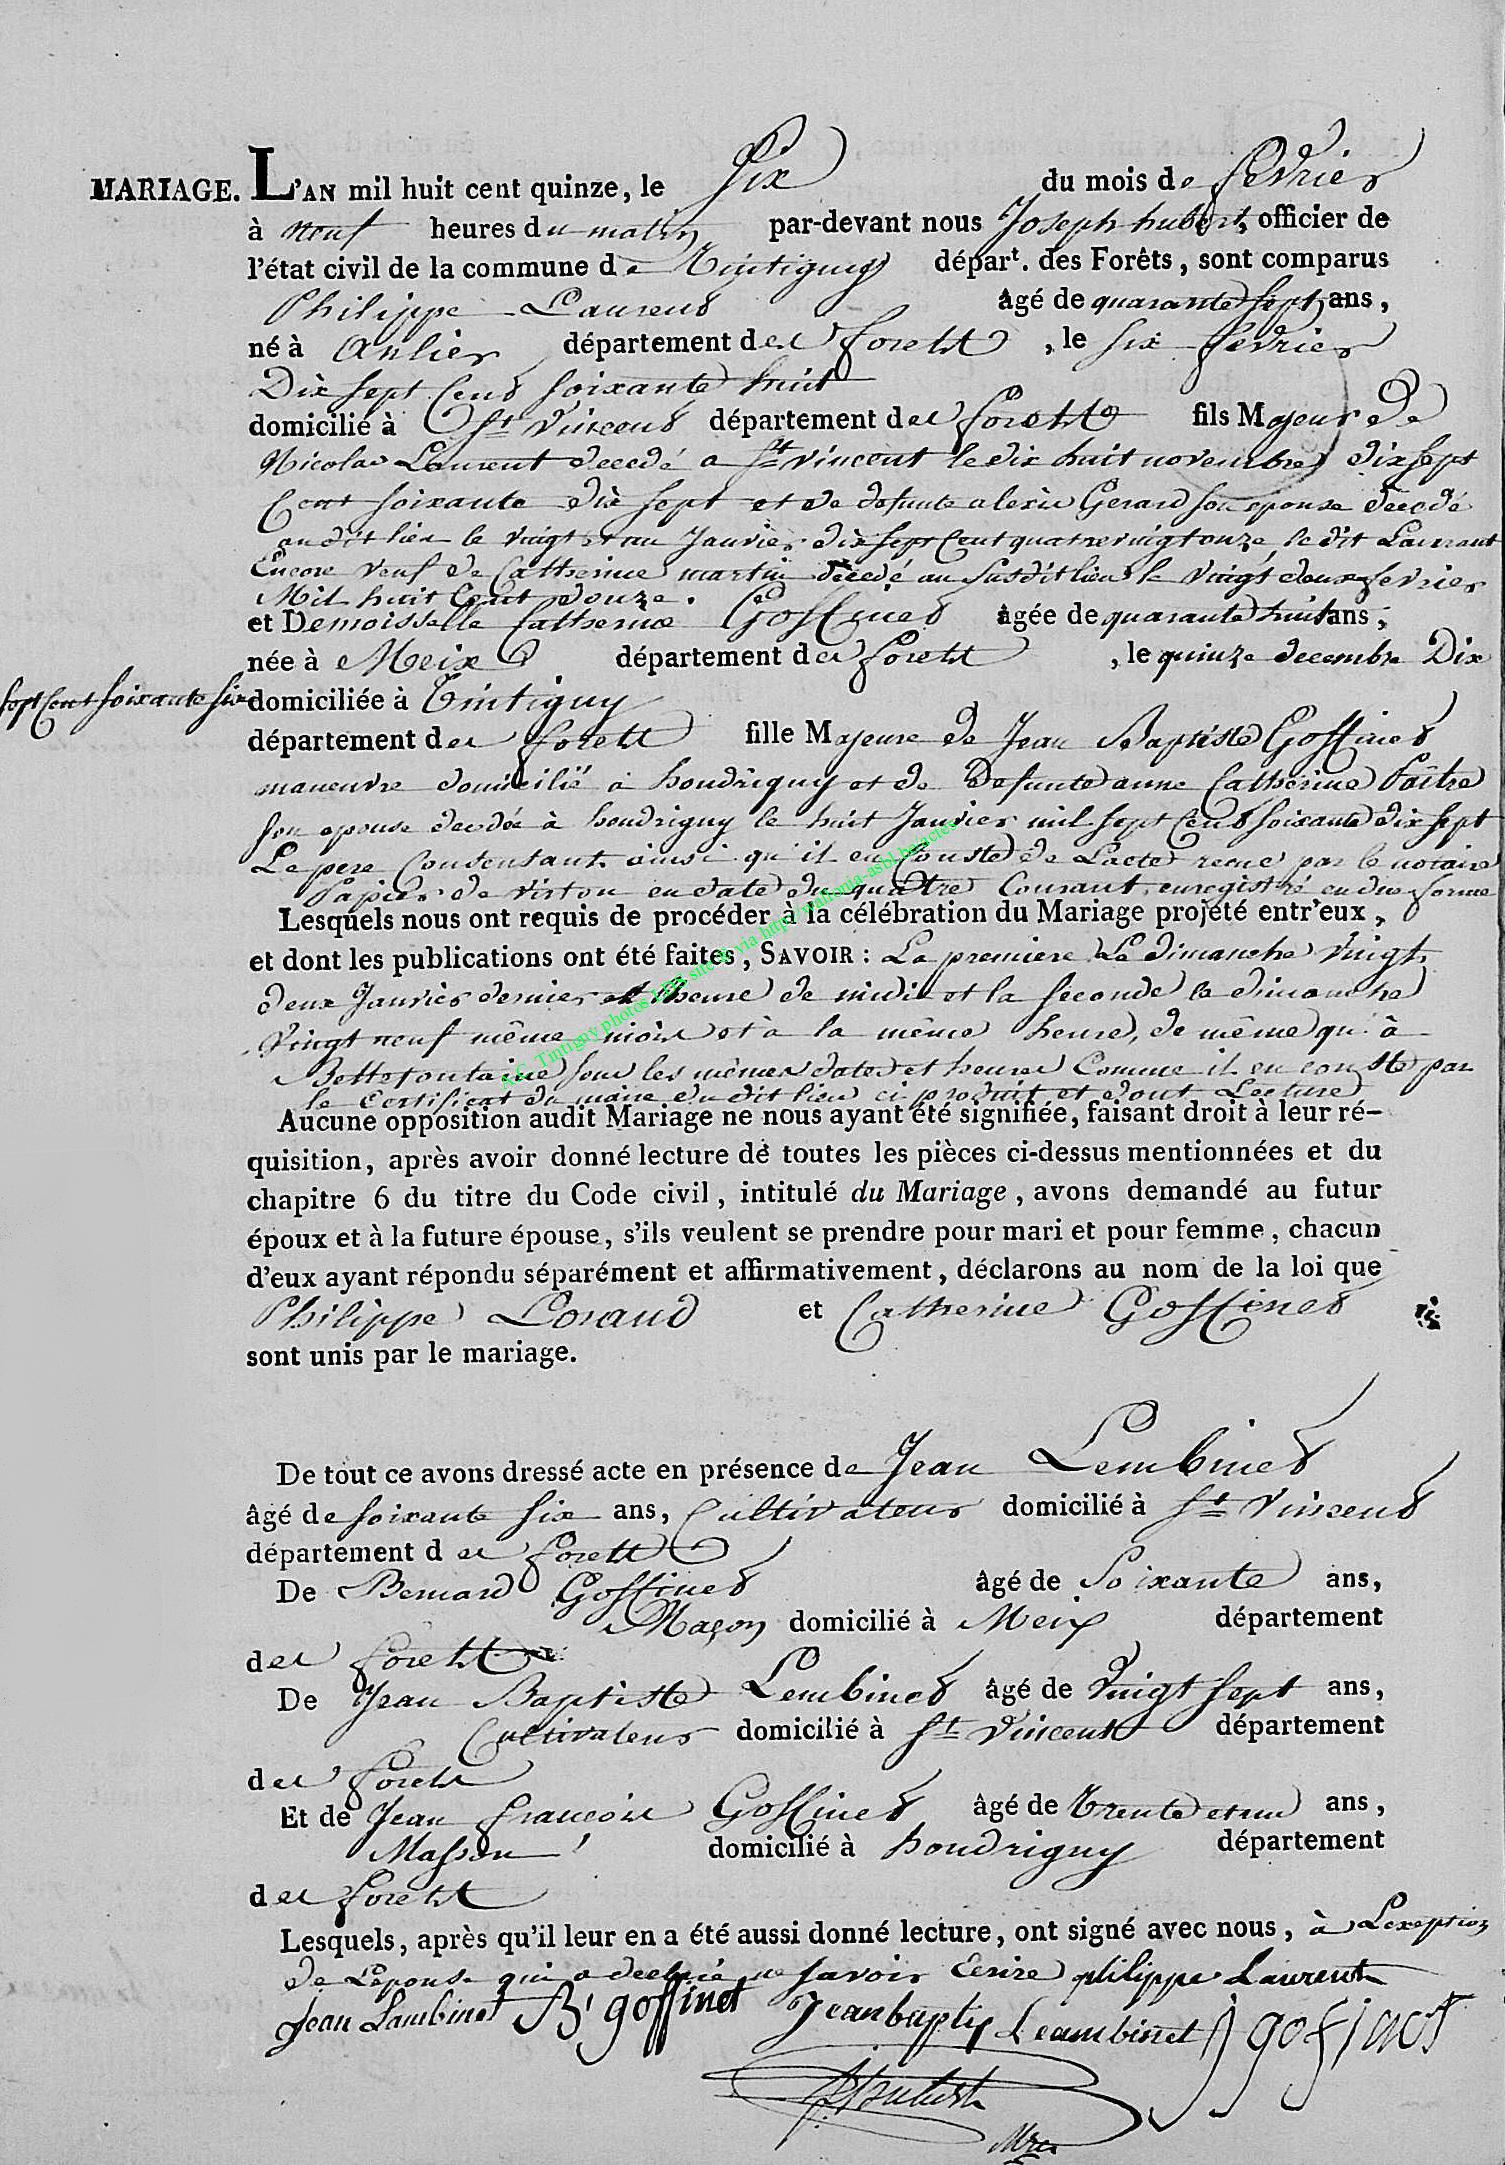 MARIAGE. L'AN mil huit cent quinze, le Six du mois de fevrier
à neuf heures du matin par-devant nous Joseph hubert, officier de
l'état civil de la commune de Tintigny départ. des Forêts, sont comparus
Philippe Laurent âgé de quarante sept ans,
né à Anlier département des foretst, le six fevrier
Dix sept Cent soixante huit
domicilié à St Vincent département des foretst fils Majeur de
Nicolas Laurent decedé a St Vincent le dix huit novembre dix sept
Cent soixante dix sept et de defunte alexis Gerard son epouse decedé
au dit lieu le vingt et un Janvier dix sept Cent quatre vingt onze, le dit Laurant
Encore veuf de Catherine martin decedé au susdit lieu le vingt deux fevrier
Mil huit Cent douze.
et Demoisselle Catherine Goffinet âgée de quarante huit ans,
née à Meix département des foretst, le quinze decembre Dix
sept Cent soixante six domiciliée à Tintigny
département des foretst fille Majeure de Jean Baptiste Goffinet
maneuvre domicilié à houdrigny et de Defunte anne Catherine Paitre
son epouse decedée à houdrigny le huit Janvier mil sept Cent soixante dix sept
Le pere Consentant ainsi qu'il en Conste de L'acte recue par le notaire
Papier de virton en date du quatre Courant, enregistré en due forme
Lesquels nous ont requis de procéder à la célébration du Mariage projeté entr'eux,
et dont les publications ont été faites, SAVOIR : La premiere Le dimanche vingt
deux Janvier dernier et heure de midi et la seconde le dimanche
vingt neuf même mois et à la même heure, de même qu'à
Bellefontaine sous les mêmes dates et heures Comme il en conste par
le Certificat du maire du dit lieu ci produit et dont Lecture
A.C. Tintigny photos LDS site & via http://wallonia-asbl.be/actes
Aucune opposition audit Mariage ne nous ayant été signifiée, faisant droit à leur ré-
quisition, après avoir donné lecture de toutes les pièces ci-dessus mentionnées et du
chapitre 6 du titre du Code civil, intitulé du Mariage, avons demandé au futur
époux et à la future épouse, s'ils veulent se prendre pour mari et pour femme, chacun
d'eux ayant répondu séparément et affirmativement, déclarons au nom de la loi que
Philippe Lorand et Catherine Goffinet
sont unis par le mariage.
De tout ce avons dressé acte en présence de Jean Lembinet
âgé de soixante six ans, Cultivateur domicilié à St Vincent
département des foretst
De Bernard Goffinet âgé de Soixante ans,
Maçon domicilié à Meix département
des foretst
De Jean Baptiste Lembinet âgé de Vingt sept ans,
Cultivateur domicilié à St Vincent département
des foretst
Et de Jean françois Goffinet âgé de trente et un ans,
Masson domicilié à houdrigny département
des foretst
Lesquels, après qu'il leur en a été aussi donné lecture, ont signé avec nous, à L'exeption
de L'epouse qui a declaré ne savoir Ecrire philippe Laurent
Jean Lambinet B goffinet Jean baptis Leambinet J gofinet
J Hubert
Mre